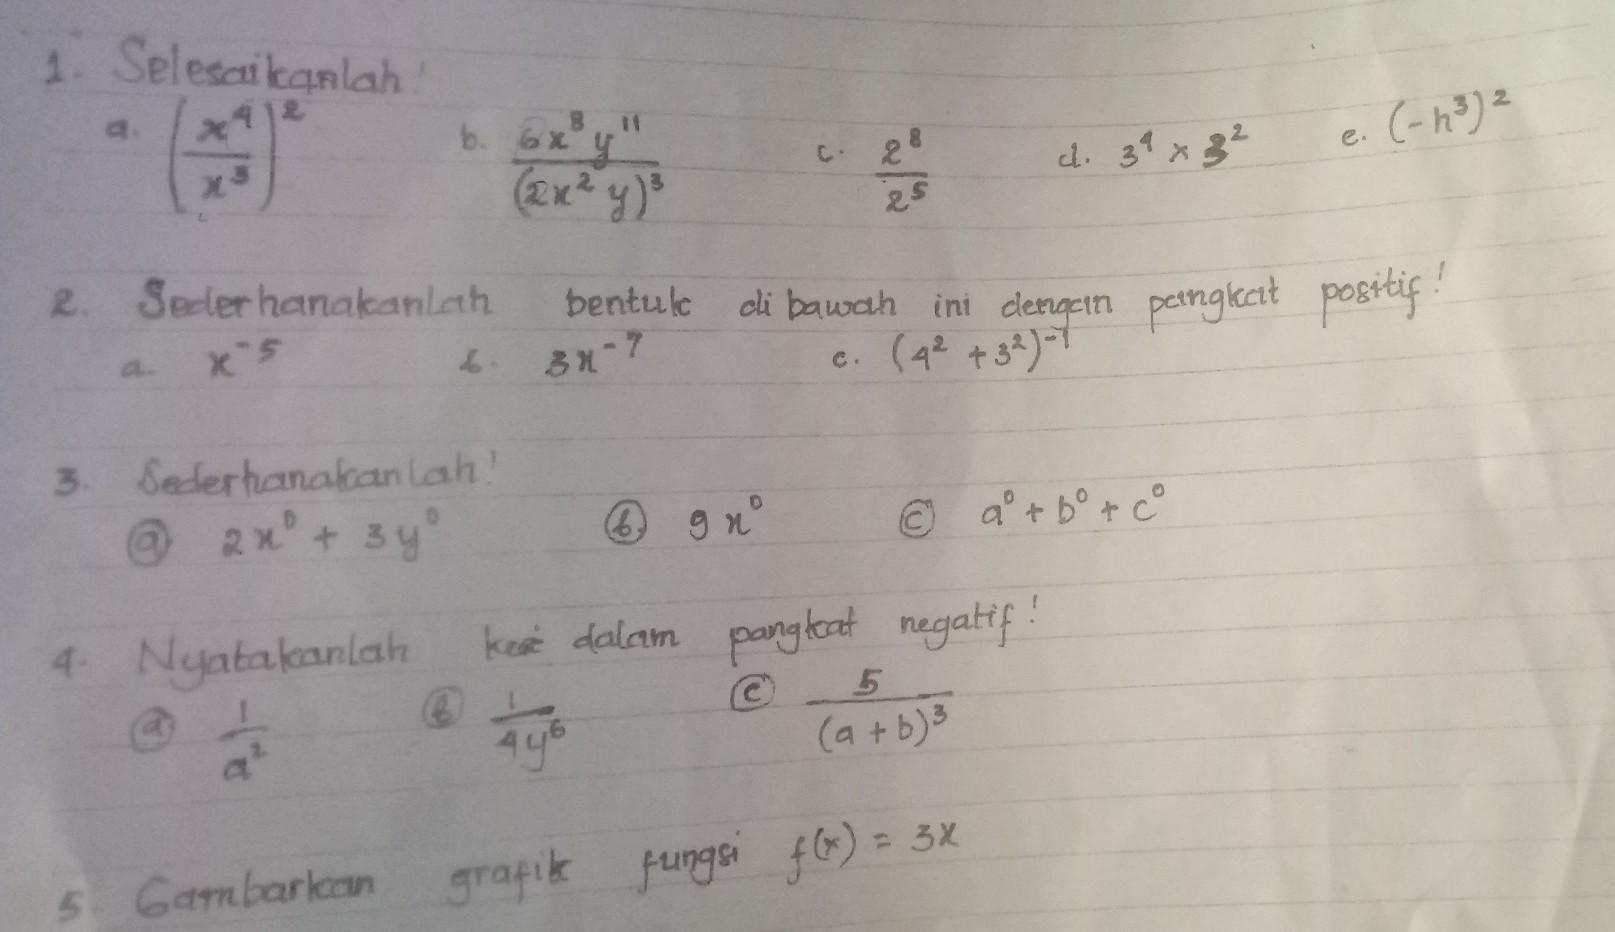 1. Selesaikanlah!
a. (x⁴/x³)² b. 6x⁸y¹¹/(2x²y)³ c. 2⁸/2⁵ d. 3⁴ × 3² e. (-h³)²
2. Sederhanakanlah bentuk di bawah ini dengan pangkat positif!
a. x⁻⁵ b. 3x⁻⁷ c. (4² + 3²)⁻¹
3. Sederhanakanlah!
ⓐ 2x⁰ + 3y⁰ ⓑ 9x⁰ ⓒ a⁰ + b⁰ + c⁰
4. Nyatakanlah ke dalam pangkat negatif!
ⓐ 1/a² ⓑ 1/4y⁶ ⓒ 5/(a + b)³
5. Gambarkan grafik fungsi f(x) = 3x